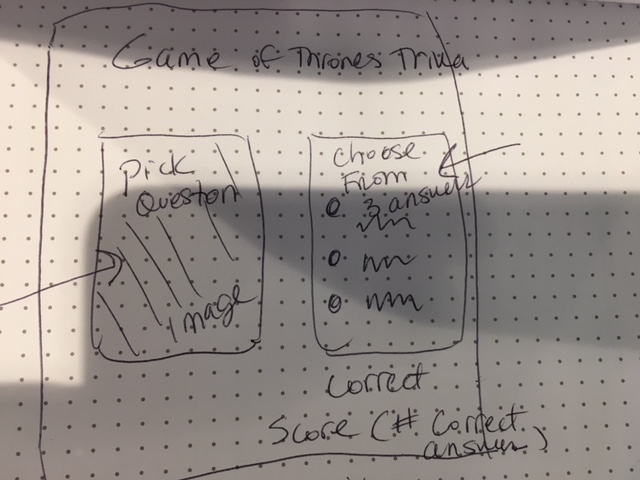 Game of Thrones Trivia
Pick
Question
Image
Choose
From
3 answers
Correct
Score (# correct
answers)